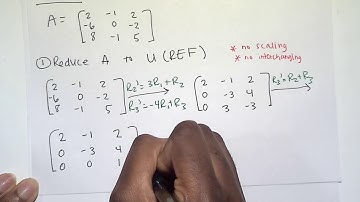 A = [2 -1 2
-6 0 -2
8 -1 5]
① Reduce A to U (REF)
* no scaling
* no interchanging
[2 -1 2
-6 0 -2
8 -1 5]
R₂' = 3R₁ + R₂
R₃' = -4R₁ + R₃
[2 -1 2
0 -3 4
0 3 -3]
R₃' = R₂ + R₃
[2 -1 2
0 -3 4
0 0 1